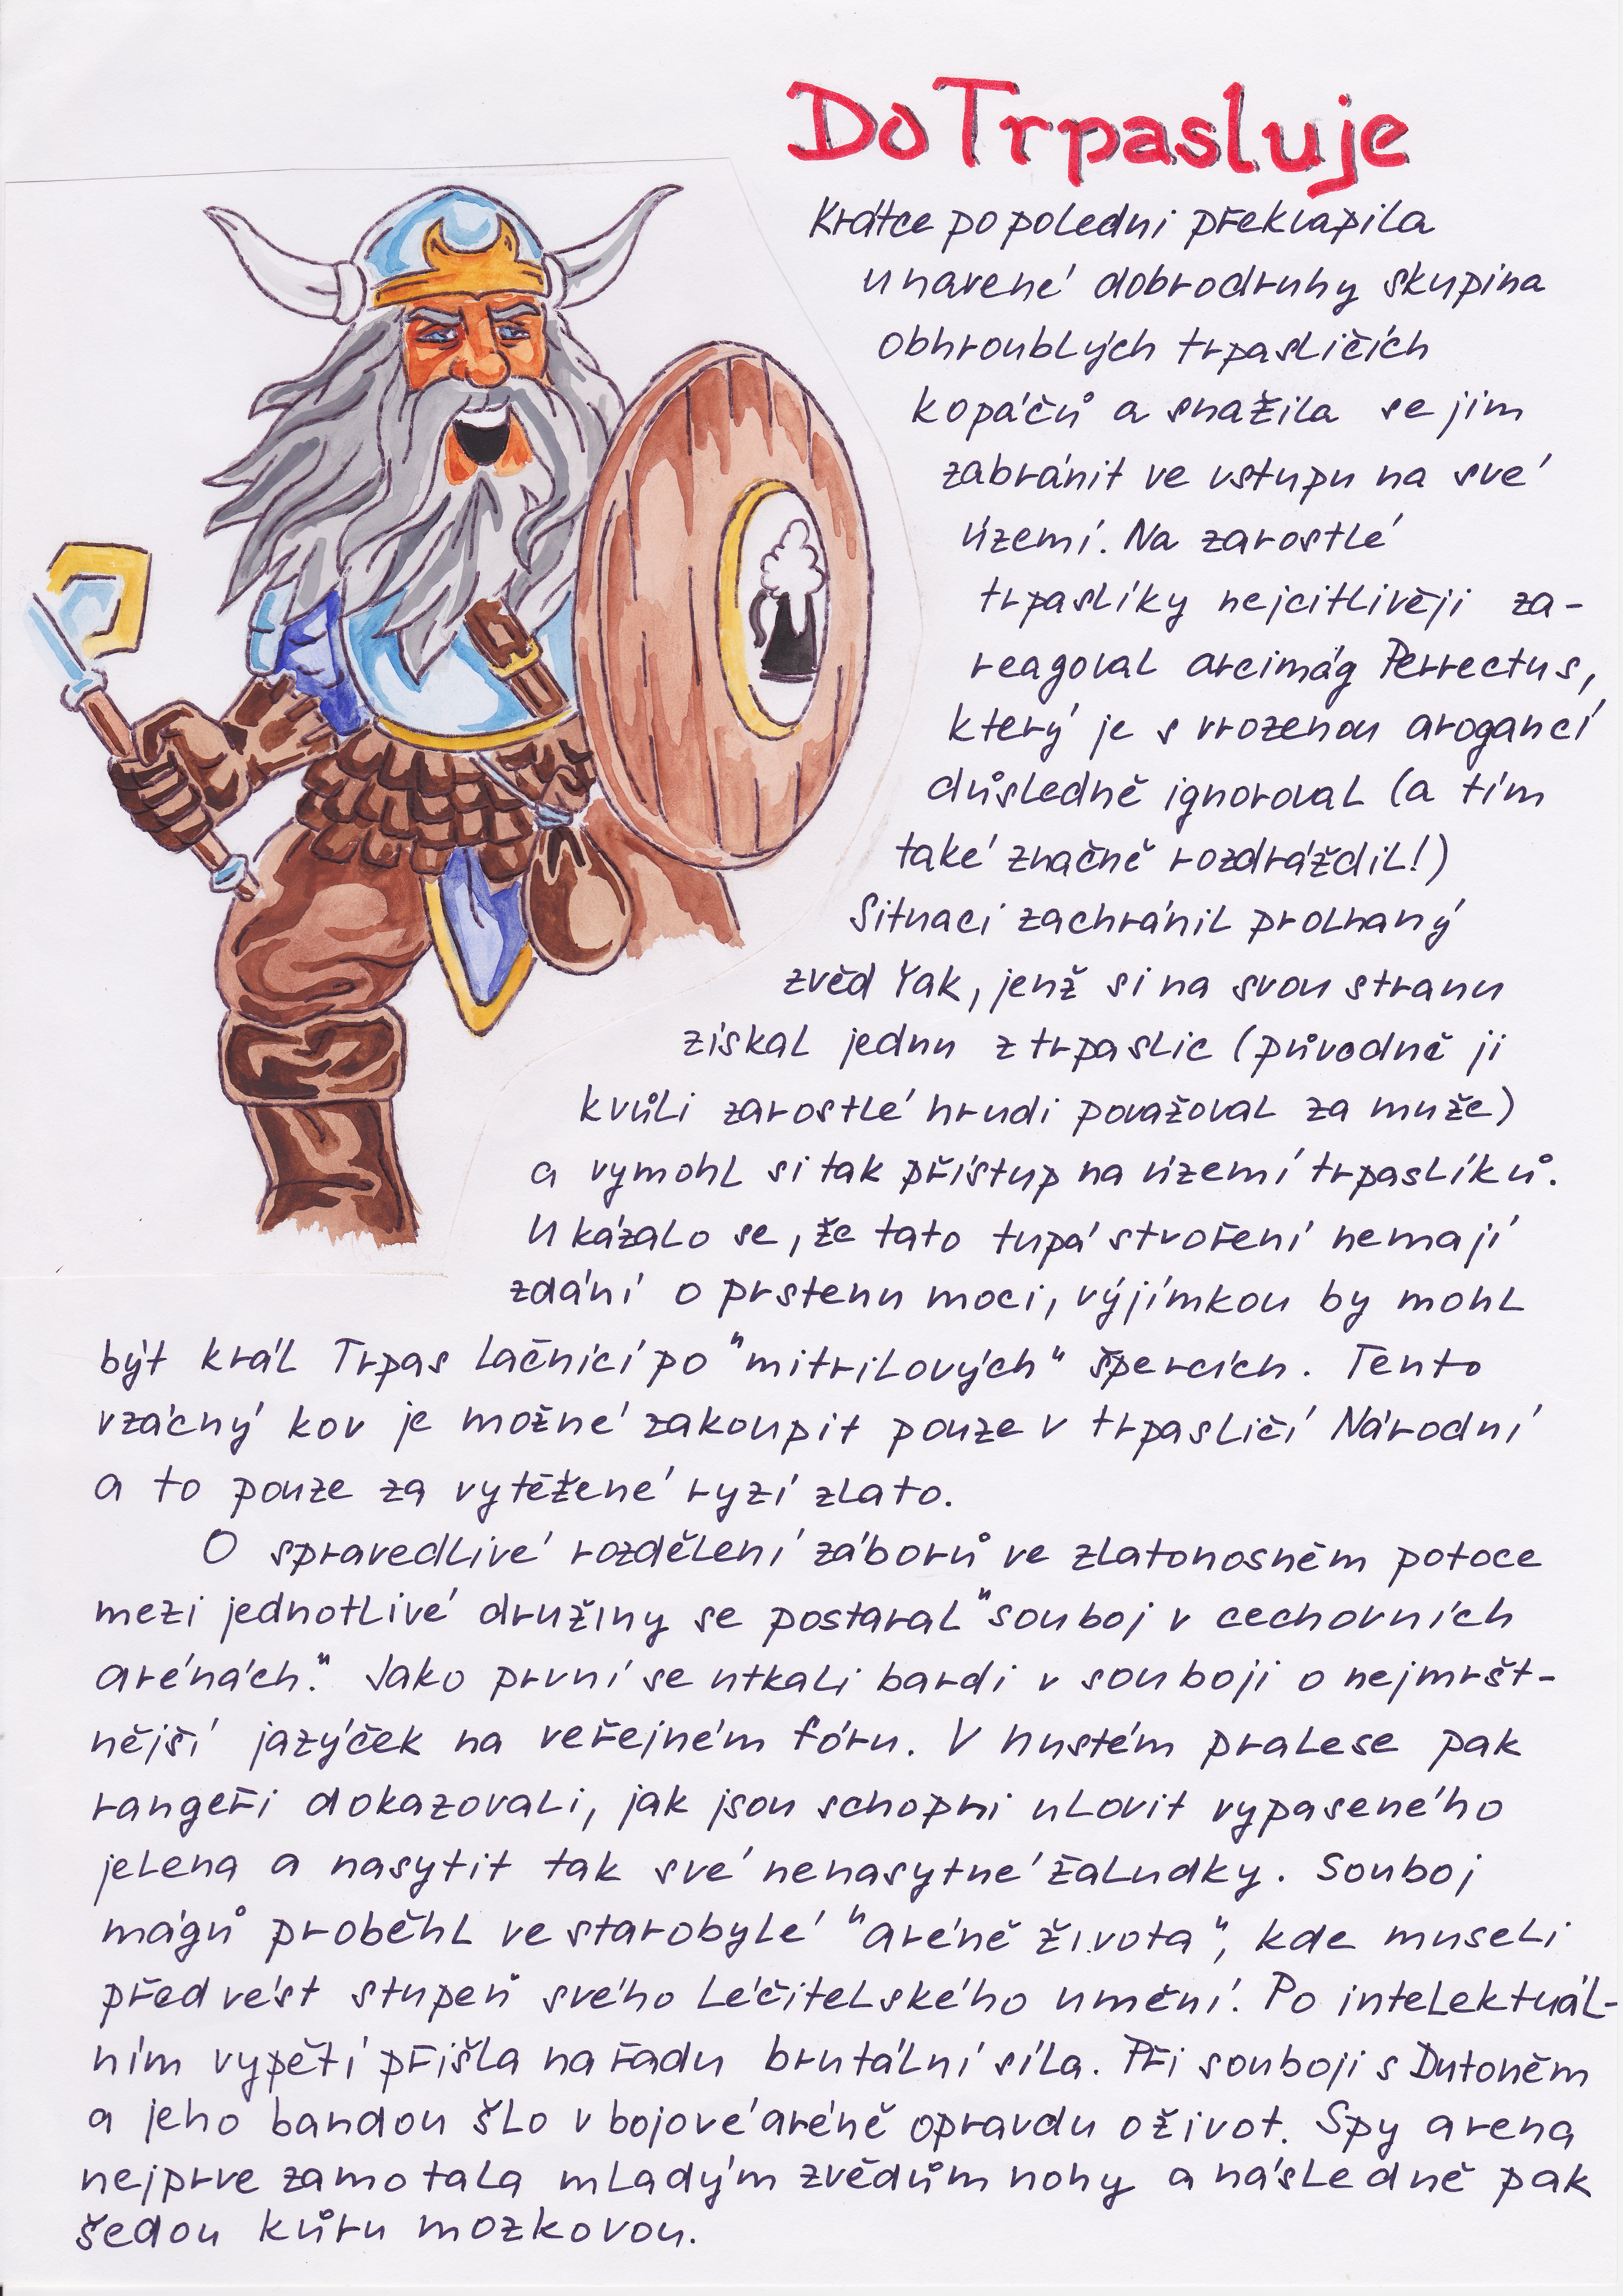 Do Trpasluje
Krátce po poledni překvapila
unavené dobrodruhy skupina
obhroublých trpasličích
kopáčů a snažila se jim
zabránit ve vstupu na své
území. Na zarostlé
trpaslíky nejcitlivěji za-
reagoval arcimág Perrectus,
který je s vrozenou arogancí
důsledně ignoroval (a tím
také značně rozdráždil!)
Situaci zachránil prolhaný
zvěd Yak, jenž si na svou stranu
získal jednu z trpaslic (původně ji
kvůli zarostlé hrudi považoval za muže)
a vymohl si tak přístup na území trpaslíků.
Ukázalo se, že tato tupá stvoření nemají
zdání o prstenu moci, výjimkou by mohl
být král Trpas lačnící po "mitrilových" špercích. Tento
vzácný kov je možné zakoupit pouze v trpasličí Národní
a to pouze za vytěžené ryzí zlato.
O spravedlivé rozdělení záborů ve zlatonosném potoce
mezi jednotlivé družiny se postaral "souboj v cechovních
arénách." Jako první se utkali bardi v souboji o nejmršt-
nější jazýček na veřejném fóru. V hustém pralese pak
rangeři dokazovali, jak jsou schopni ulovit vypaseného
jelena a nasytit tak své nenasytné žaludky. Souboj
mágů proběhl ve starobylé "aréně života", kde museli
předvést stupeň svého léčitelského umění. Po intelektuál-
ním vypětí přišla na řadu brutální síla. Při souboji s Dutoněm
a jeho bandou šlo v bojové aréně opravdu o život. Spy arena
nejprve zamotala mladým zvědům nohy a následně pak
šedou kůru mozkovou.